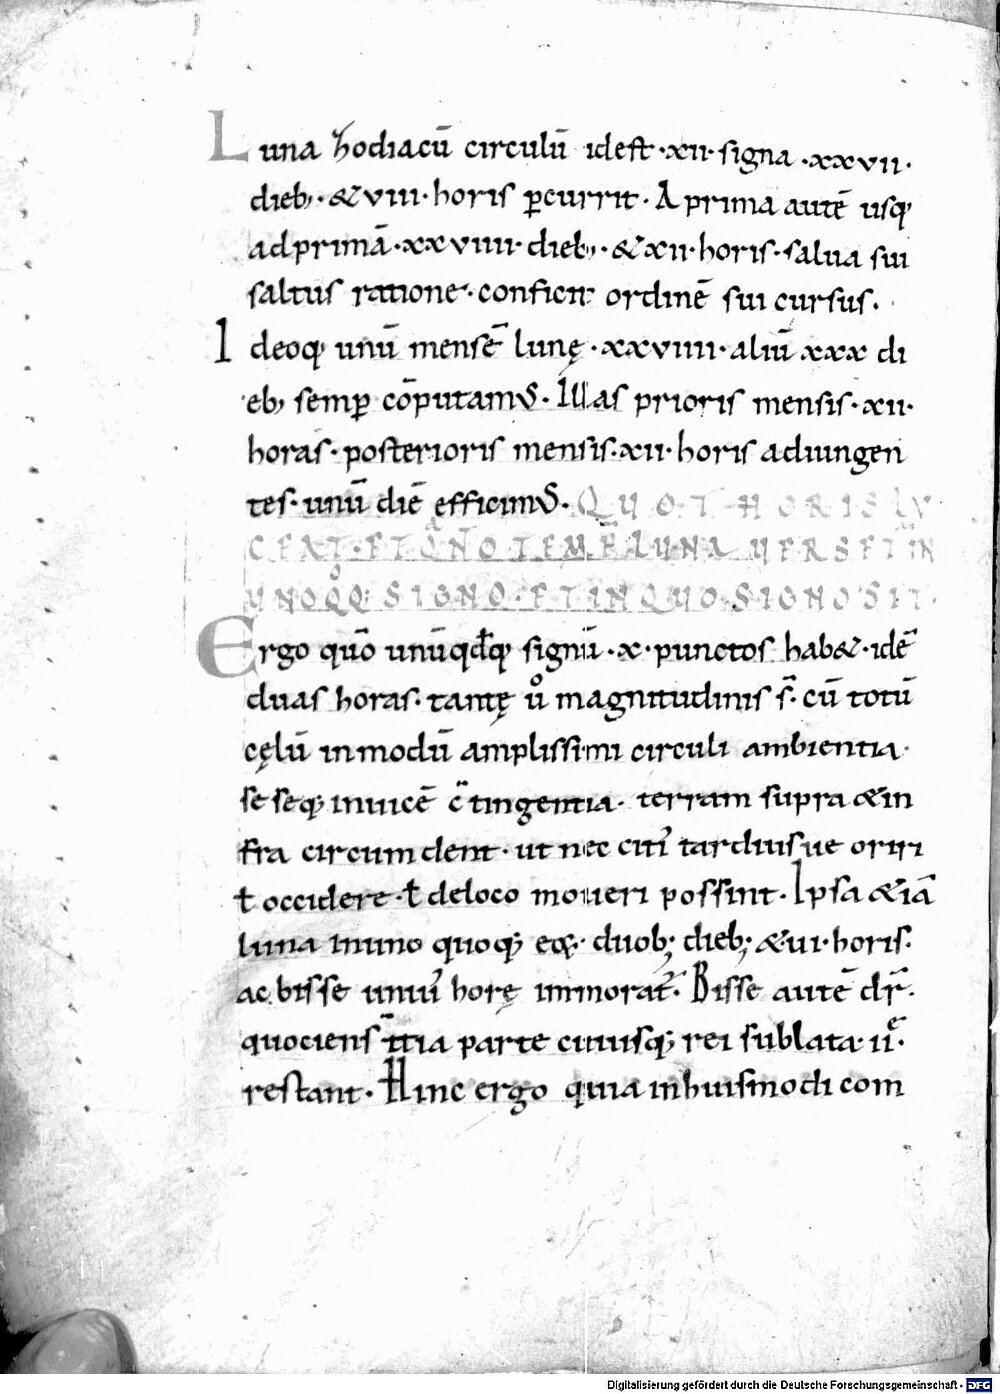 Luna hodiacū circulū ideſt·xii·ſigna·xxvii·
dieb;·&viii·horiſ ꝑcurrit·A prima autē uſq;
adprimā·xxviiii·dieb;·&xii·horiſ·ſalua ſui
ſaltuſ ratione·conficit ordinē ſui curſuſ.
Ideoq; unū menſē lunę·xxviiii·aliū xxx di
eb; ſemꝑ cōputamuſ·Illaſ prioriſ menſiſ·xii·
horaſ·poſterioriſ menſiſ·xii·horiſ adiungen
teſ·unū diē efficimuſ·QUOT HORIS LV
CEAT·ET Q̄NO TEMP̄R LUNA UERSET̄ IN
UNOQ°Q; SIGNO·ET IN QUO SIGNO SIT·
Ergo quō unūqđq; ſignū·x·punctoſ hab&·idē
duaſ horaſ·tantę uͦ magnitudiniſ ſ̄·cū totū
cęlū inmodū ampliſſimi circuli ambientia·
ſeſeq; inuicē c̄tingentia·terram ſupra &in
fra circumdent·ut nec citi᾽ tardiuſue oriri
ƚ occidere·ƚ deloco moueri poſſint·Ipſa &iā
luna inuno quoq; eoꝝ·duob; dieb; &ui·horiſ·
ac biſſe uniu᾽ horę inmorat᾽·Biſſe autē dr̄·
quocienſ t̄tia parte cuiuſq; rei ſublata·iiᵉ̄·
reſtant·Hinc ergo quia inhuiſmodi com
Digitalisierung gefördert durch die Deutsche Forschungsgemeinschaft - DFG